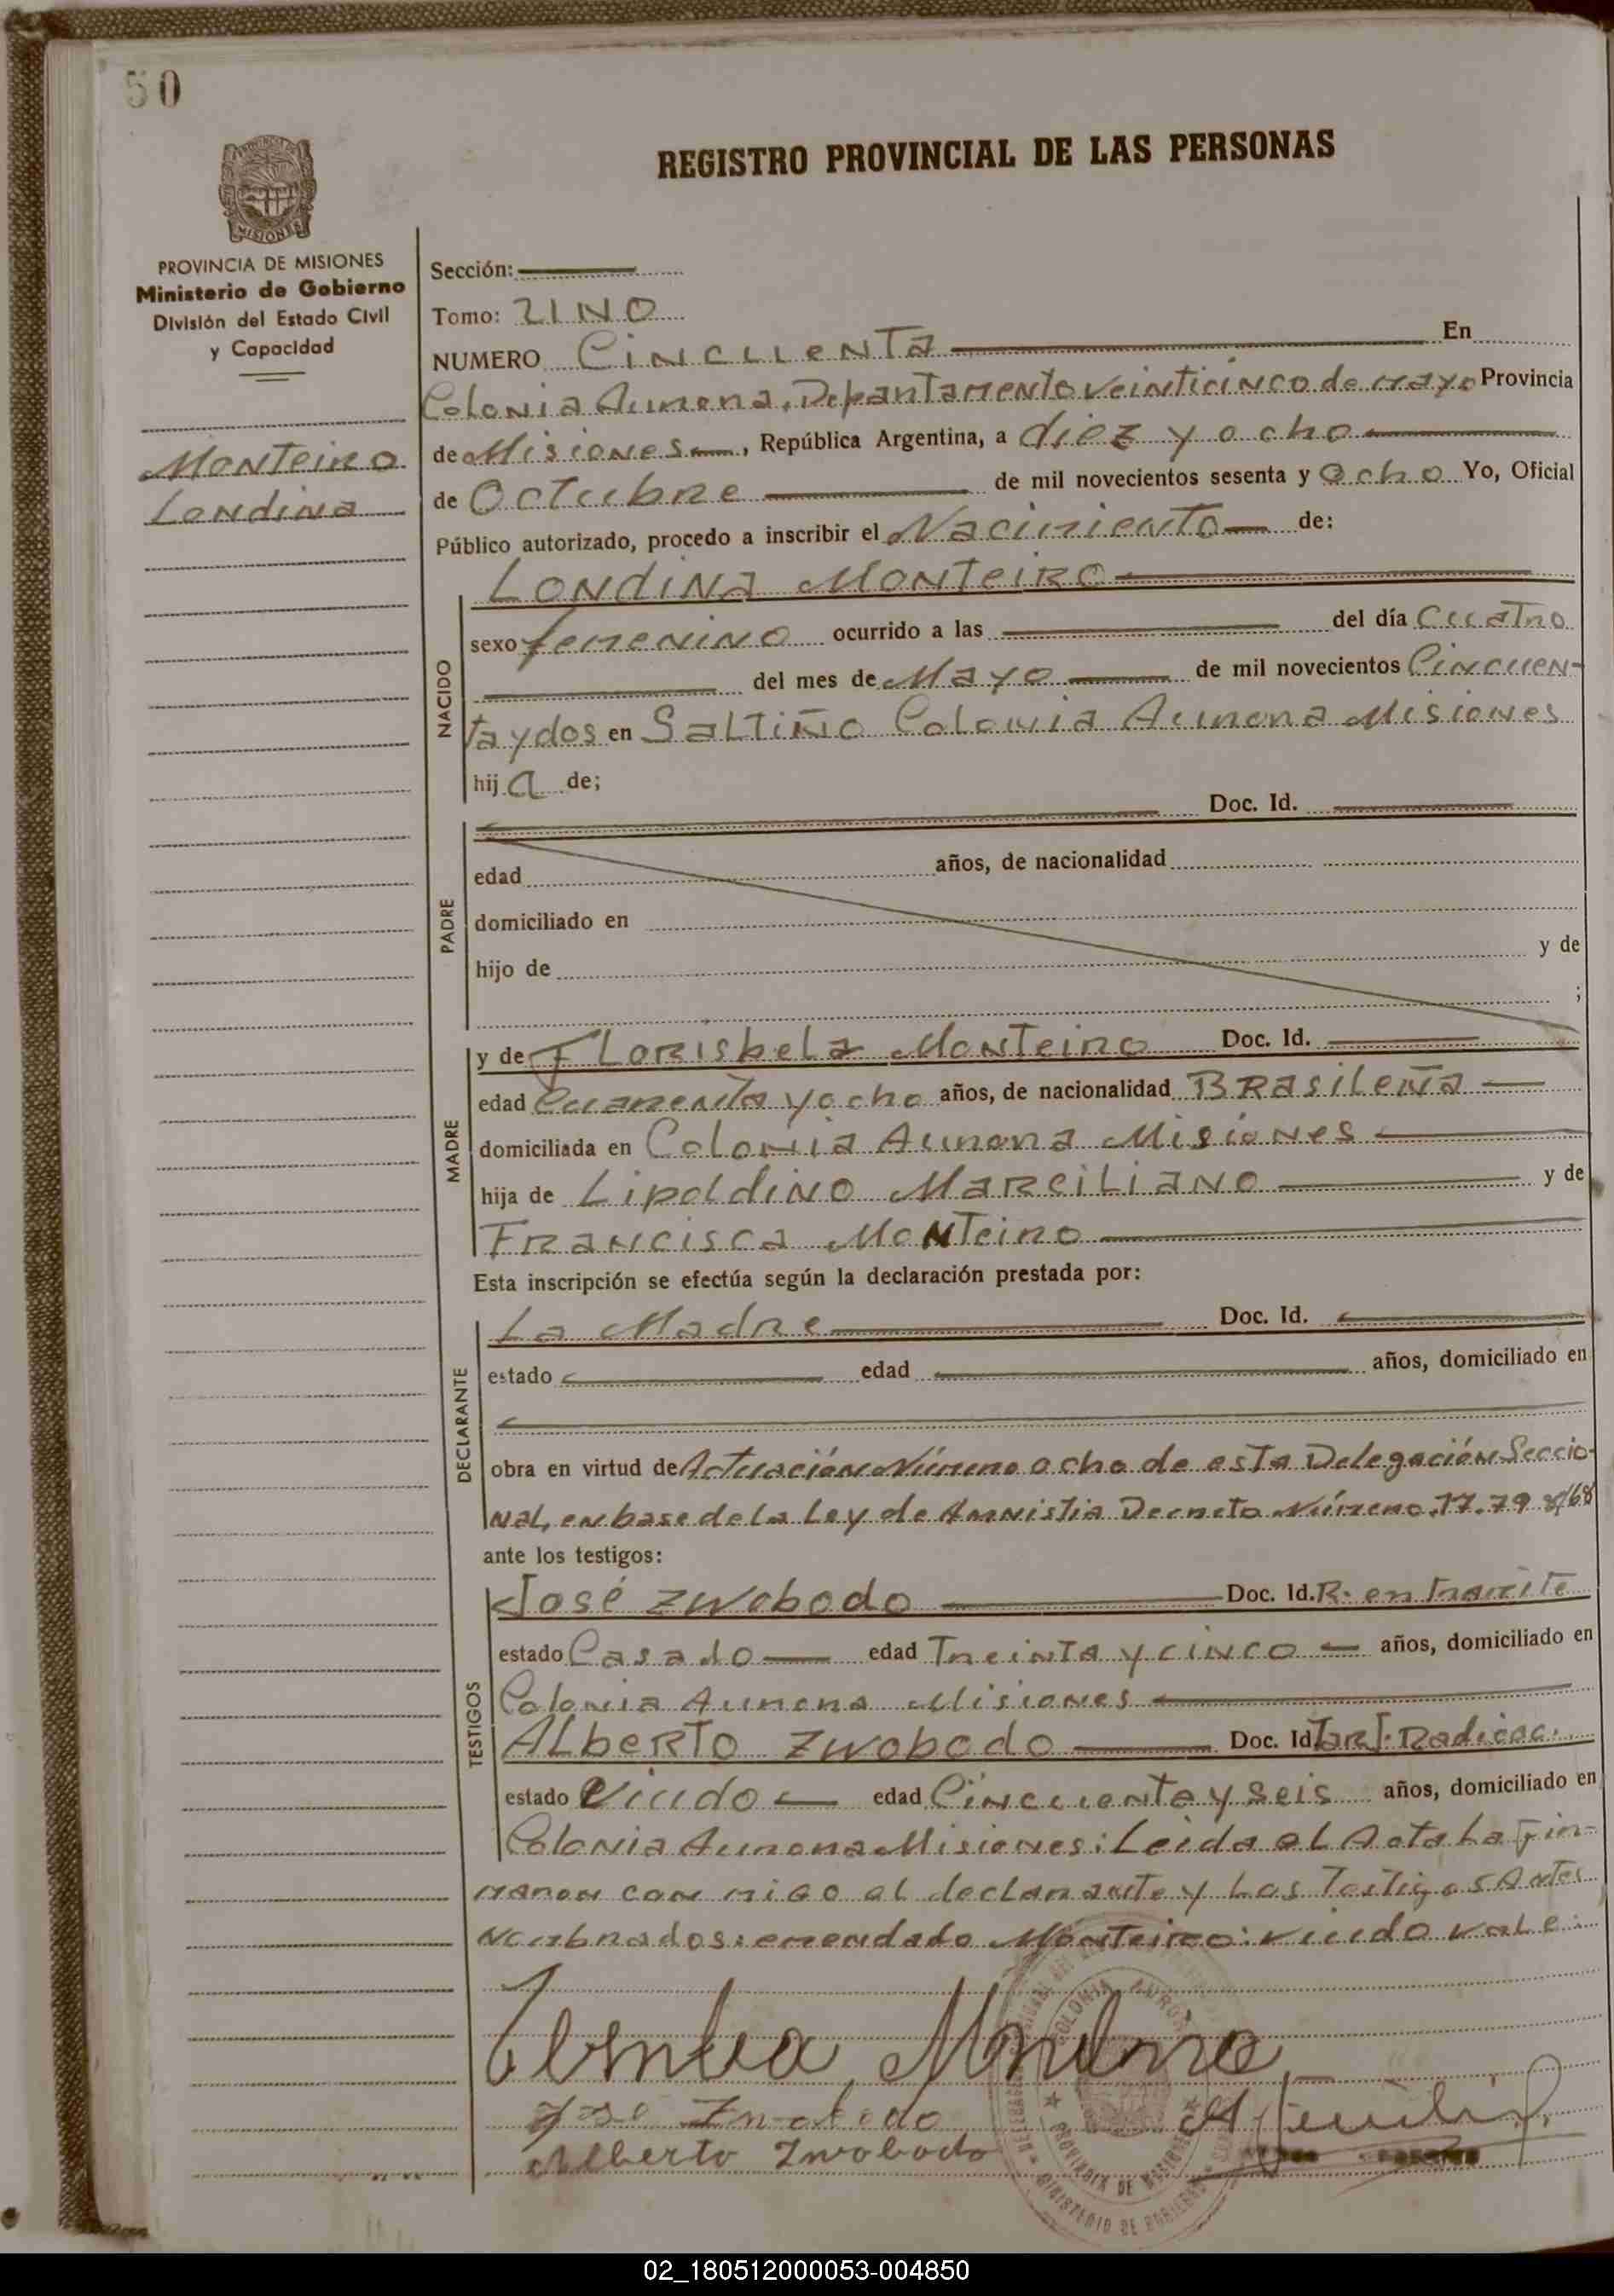 50
REGISTRO PROVINCIAL DE LAS PERSONAS
MISIONES
PROVINCIA DE MISIONES
Ministerio de Gobierno
División del Estado Civil
y Capacidad
Monteiro
Londina
Sección:
Tomo: UNO
NUMERO Cincuenta En
Colonia Aurora, Departamento Veinticinco de Mayo Provincia
de Misiones, República Argentina, a diez y ocho
de Octubre de mil novecientos sesenta y Ocho Yo, Oficial
Público autorizado, procedo a inscribir el Nacimiento de:
NACIDO
Londina Monteiro
sexo femenino ocurrido a las del día Cuatro
del mes de Mayo de mil novecientos Cincuen-
ta y dos en Saltiño Colonia Aurora Misiones
hija de;
PADRE
Doc. Id.
edad años, de nacionalidad
domiciliado en
hijo de y de
;
MADRE
y de Florisbela Monteiro Doc. Id.
edad Cuarenta y ocho años, de nacionalidad Brasileña
domiciliada en Colonia Aurora Misiones
hija de Lipoldino Marciliano y de
Francisca Monteiro
Esta inscripción se efectúa según la declaración prestada por:
DECLARANTE
La Madre Doc. Id.
estado edad años, domiciliado en
obra en virtud de Actuación Número ocho de esta Delegación Seccio-
nal, en base de la Ley de Amnistia Decreto Número 17.798/68
ante los testigos:
TESTIGOS
José Zwobodo Doc. Id. R. en tramite
estado Casado edad Treinta y cinco años, domiciliado en
Colonia Aurora Misiones
Alberto Zwobodo Doc. Id Tarj. Radicac.
estado Viudo edad Cincuenta y seis años, domiciliado en
Colonia Aurora Misiones: Leida el Acta La Fir-
maron con migo el declarante y Los Testigos Antes
Nombrados: emendado Monteiro: viudo vale:
COLONIA AURORA
PROVINCIA DE MISIONES
MINISTERIO DE GOBIERNO
Alberto Zwobodo
02_180512000053-004850